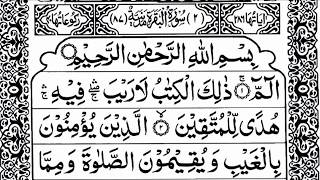 اٰيَاتُهَا ٢٨٦ (٢) سُوْرَةُ الْبَقَرَةِ مَدَنِيَّةٌ (٨٧) رُكُوْعَاتُهَا
بِسْمِ اللّٰهِ الرَّحْمٰنِ الرَّحِيْمِ
الٓمّٓ ۚ﴿١﴾ ذٰلِكَ الْكِتٰبُ لَا رَيْبَ ۛۖ فِيْهِ ۛۚ
هُدًى لِّلْمُتَّقِيْنَ ۙ﴿٢﴾ الَّذِيْنَ يُؤْمِنُوْنَ
بِالْغَيْبِ وَيُقِيْمُوْنَ الصَّلٰوةَ وَمِمَّا